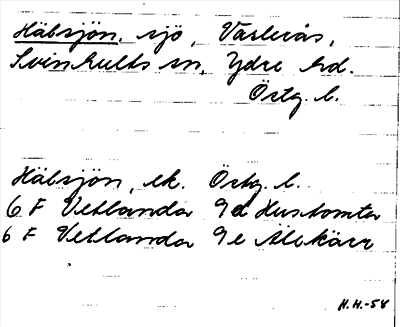 Hälsjön, sjö, Västerås,
Svinhults sn, Ydre hd.
Östg. l.
Hälsjön, ek. Östg. l.
6 F Vetlanda 9 d Hustomta
6 F Vetlanda 9 e Älekärr
H.H.-58